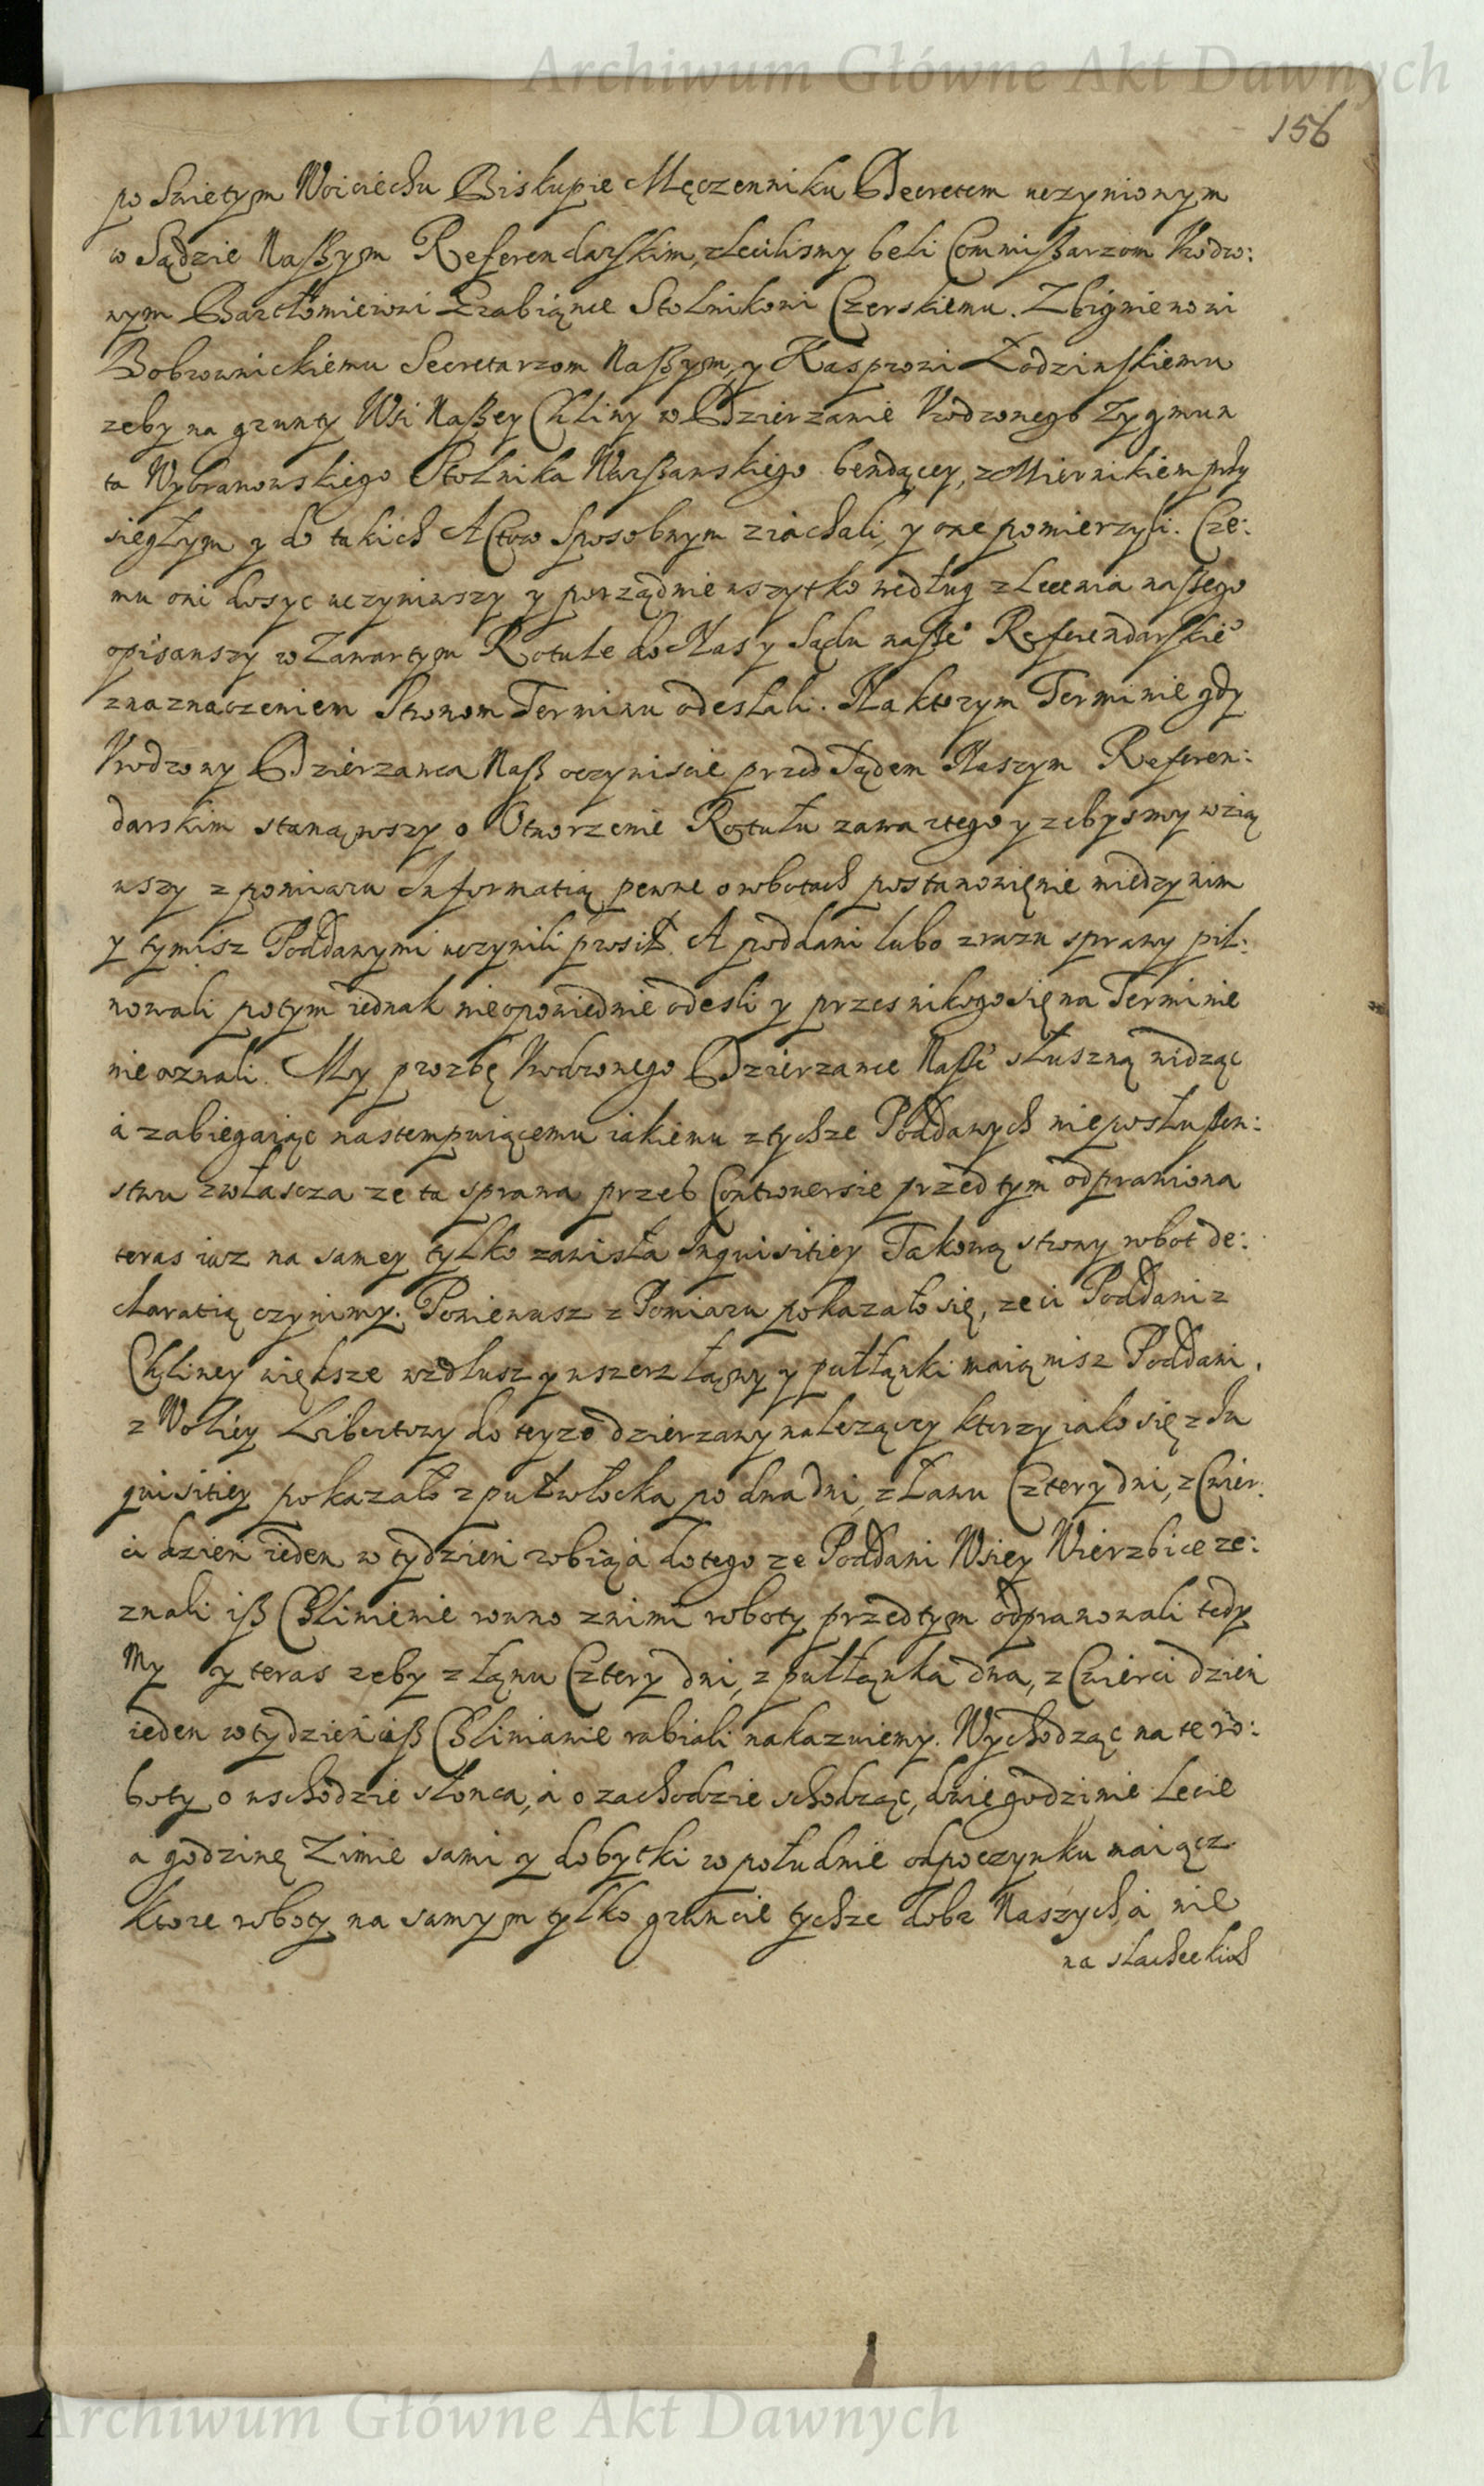 Archiwum Główne Akt Dawnych
156
po Swietym Woiciechu Biskupie Męczenniku Decretem uczynionym
w Sądzie Naßym Referendarskim, zlecilismy beli Commißarzom Vrodzo:
nym Barthłomieiowi Stolnikowi Czerskiemu. Zbigniewowi
Bobrownickiemu Secretarzom Naßym, y Kasprowi Łodzinskiemu
zeby na grunty Wsi Naßey Chliny w Dzierzawie Vrodzonego Zygmun
ta Wybranowskiego Stolnika Warßawskiego bendącey, z Miernikiem przy
sięgłym y do takich Actow sposobnym ziachali, y one pomierzyli. Cze:
mu oni dosyc uczyniwszy y porządnie wszytko według zlecenia naßego
opisawszy w Zawartym Rotule do Nas y Sądu naße° Referendarskie°
z naznaczeniem Stronom Terminu odesłali. Na ktorym Terminie gdy
Vrodzony Dzierzawca Naß oczywiscie przed Sądem Naszym Referen:
darskim stanąwszy o Otworzenie Rotułu zawartego y zebysmy wzią
wszy z pomiaru Informatią pewne o robotach postanowięnie miedzy nim
y tymisz Poddanymi uczynili prosił. A poddani lubo zrazu sprawy pil:
nowali potym iednak nieopowiednie odesli y przes nikogo się na Terminie
nie oznali. My prozbę Vrodzonego Dzierzawce Naße° słuszną widząc
a zabiegaiąc nastempuiącemu iakiemu z tychze Poddanych nieposłußen:
stwu zwłascza ze ta sprawa przes Controuersie przedtym odprawiona
teras iuz na samey tylko zawisła Inquisitiey Takową strony robot de:
claratią czynimy. Poniewasz z Pomiaru pokazało się, ze ci Poddani z
Chliney większe wzdłusz y wszerz łąny y pułłąnki maią nisz Poddani
z Woliey Libertowy do teyze dzierzawy nalezącey ktorzy iako się z In
quisitiey pokazało z pułwłocka po dwa dni, z łanu Cztery dni, z Cwier:
ci dzien ieden w tydzien robią, a do tego ze Poddani Wsiey Wierzbice ze:
znali iß Chlinienie rowno z nimi roboty przedtym odprawowali tedy
My y teras zeby z łąnu Cztery dni, z pułłąnka dwa, z Cwierci dzien
ieden w tydzien iß Chlinianie rabiali nakazuiemy. Wychodząc na te ro:
boty o wschodzie słonca, a o zachodzie schodząc, dwie godzinie Lecie
a godzinę Zimie sami y dobytki w południe odpoczynku maiącz
Ktore roboty na samym tylko gruncie tychze dobr Naszych a nie
na slacheckich
Archiwum Główne Akt Dawnych